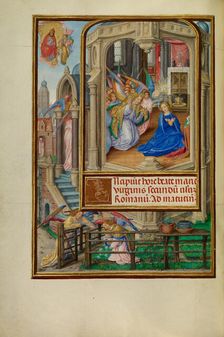 Incipiunt hore beate marie
virginis secundū usū
Romanū. Ad matutin̄